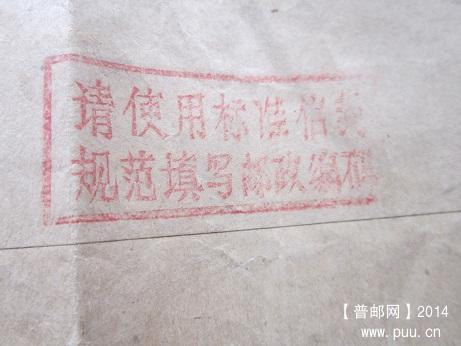 请使用标准信封
规范填写邮政编码
【普邮网】2014
www.puu.cn